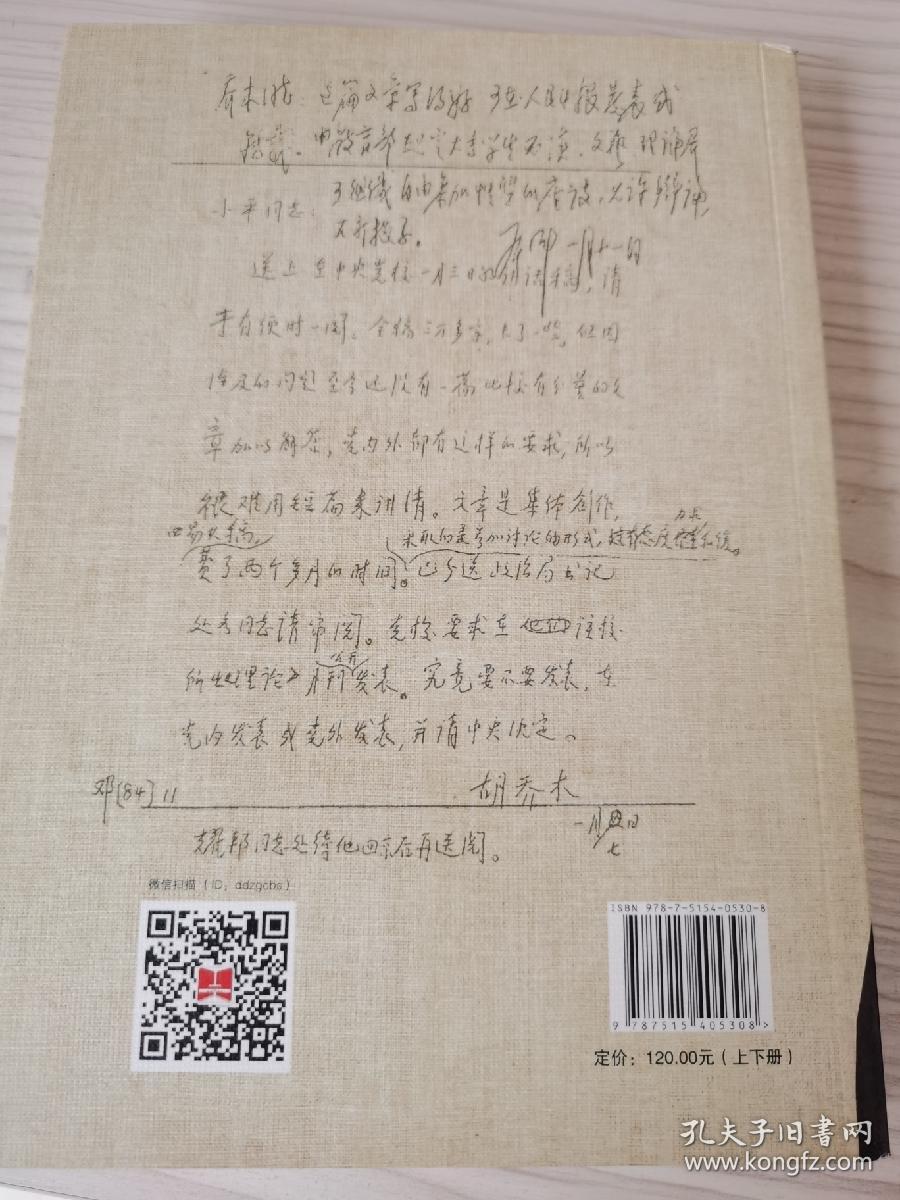 乔木同志：这篇文章写得好 可在人民日报发表或
转载。由教育部规定大专学生必读。文艺、理论界
可组织自由参加性质的座谈，允许辩论，
不打棍子。
小平同志：
一月十一日
送上在中央党校一月三日的讲话稿，请
于有便时一阅。全稿三万多字，长了一些，但因
涉及的问题至今还没有一篇比较有分量的文
章加以解答，党内外都有这样的要求，所以
很难用短篇来讲清。文章是集体创作，
四易其稿，
采取的是参加讨论的形式，
费了两个多月的时间。已分送政治局书记
处各同志请审阅。党校要求在该校
所出《理论》月刊公开发表。究竟要不要发表，在
党内发表或党外发表，并请中央决定。
胡乔木
邓[84]11
一月七日
耀邦同志处待他回京后再送阅。
微信扫描（ID：ddzgcbs）
ISBN 978-7-5154-0530-8
9 787515 405308 >
定价：120.00元（上下册）
孔夫子旧书网
www.kongfz.com